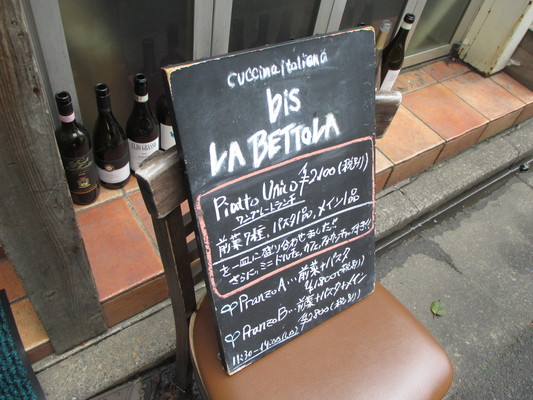 cuccina italiana
bis
LA BETTOLA
Piatto Unico ¥2100(税別)
ワンプレートランチ
前菜7種、パスタ1品、メイン1品
を一皿に盛り合わせました!!
さらに、ミニドルチェ、カフェ
Pranzo A…前菜+パスタ
¥1800(税別)
Pranzo B…前菜+パスタ+メイン
11:30-14:00(LO) ¥2800(税別)